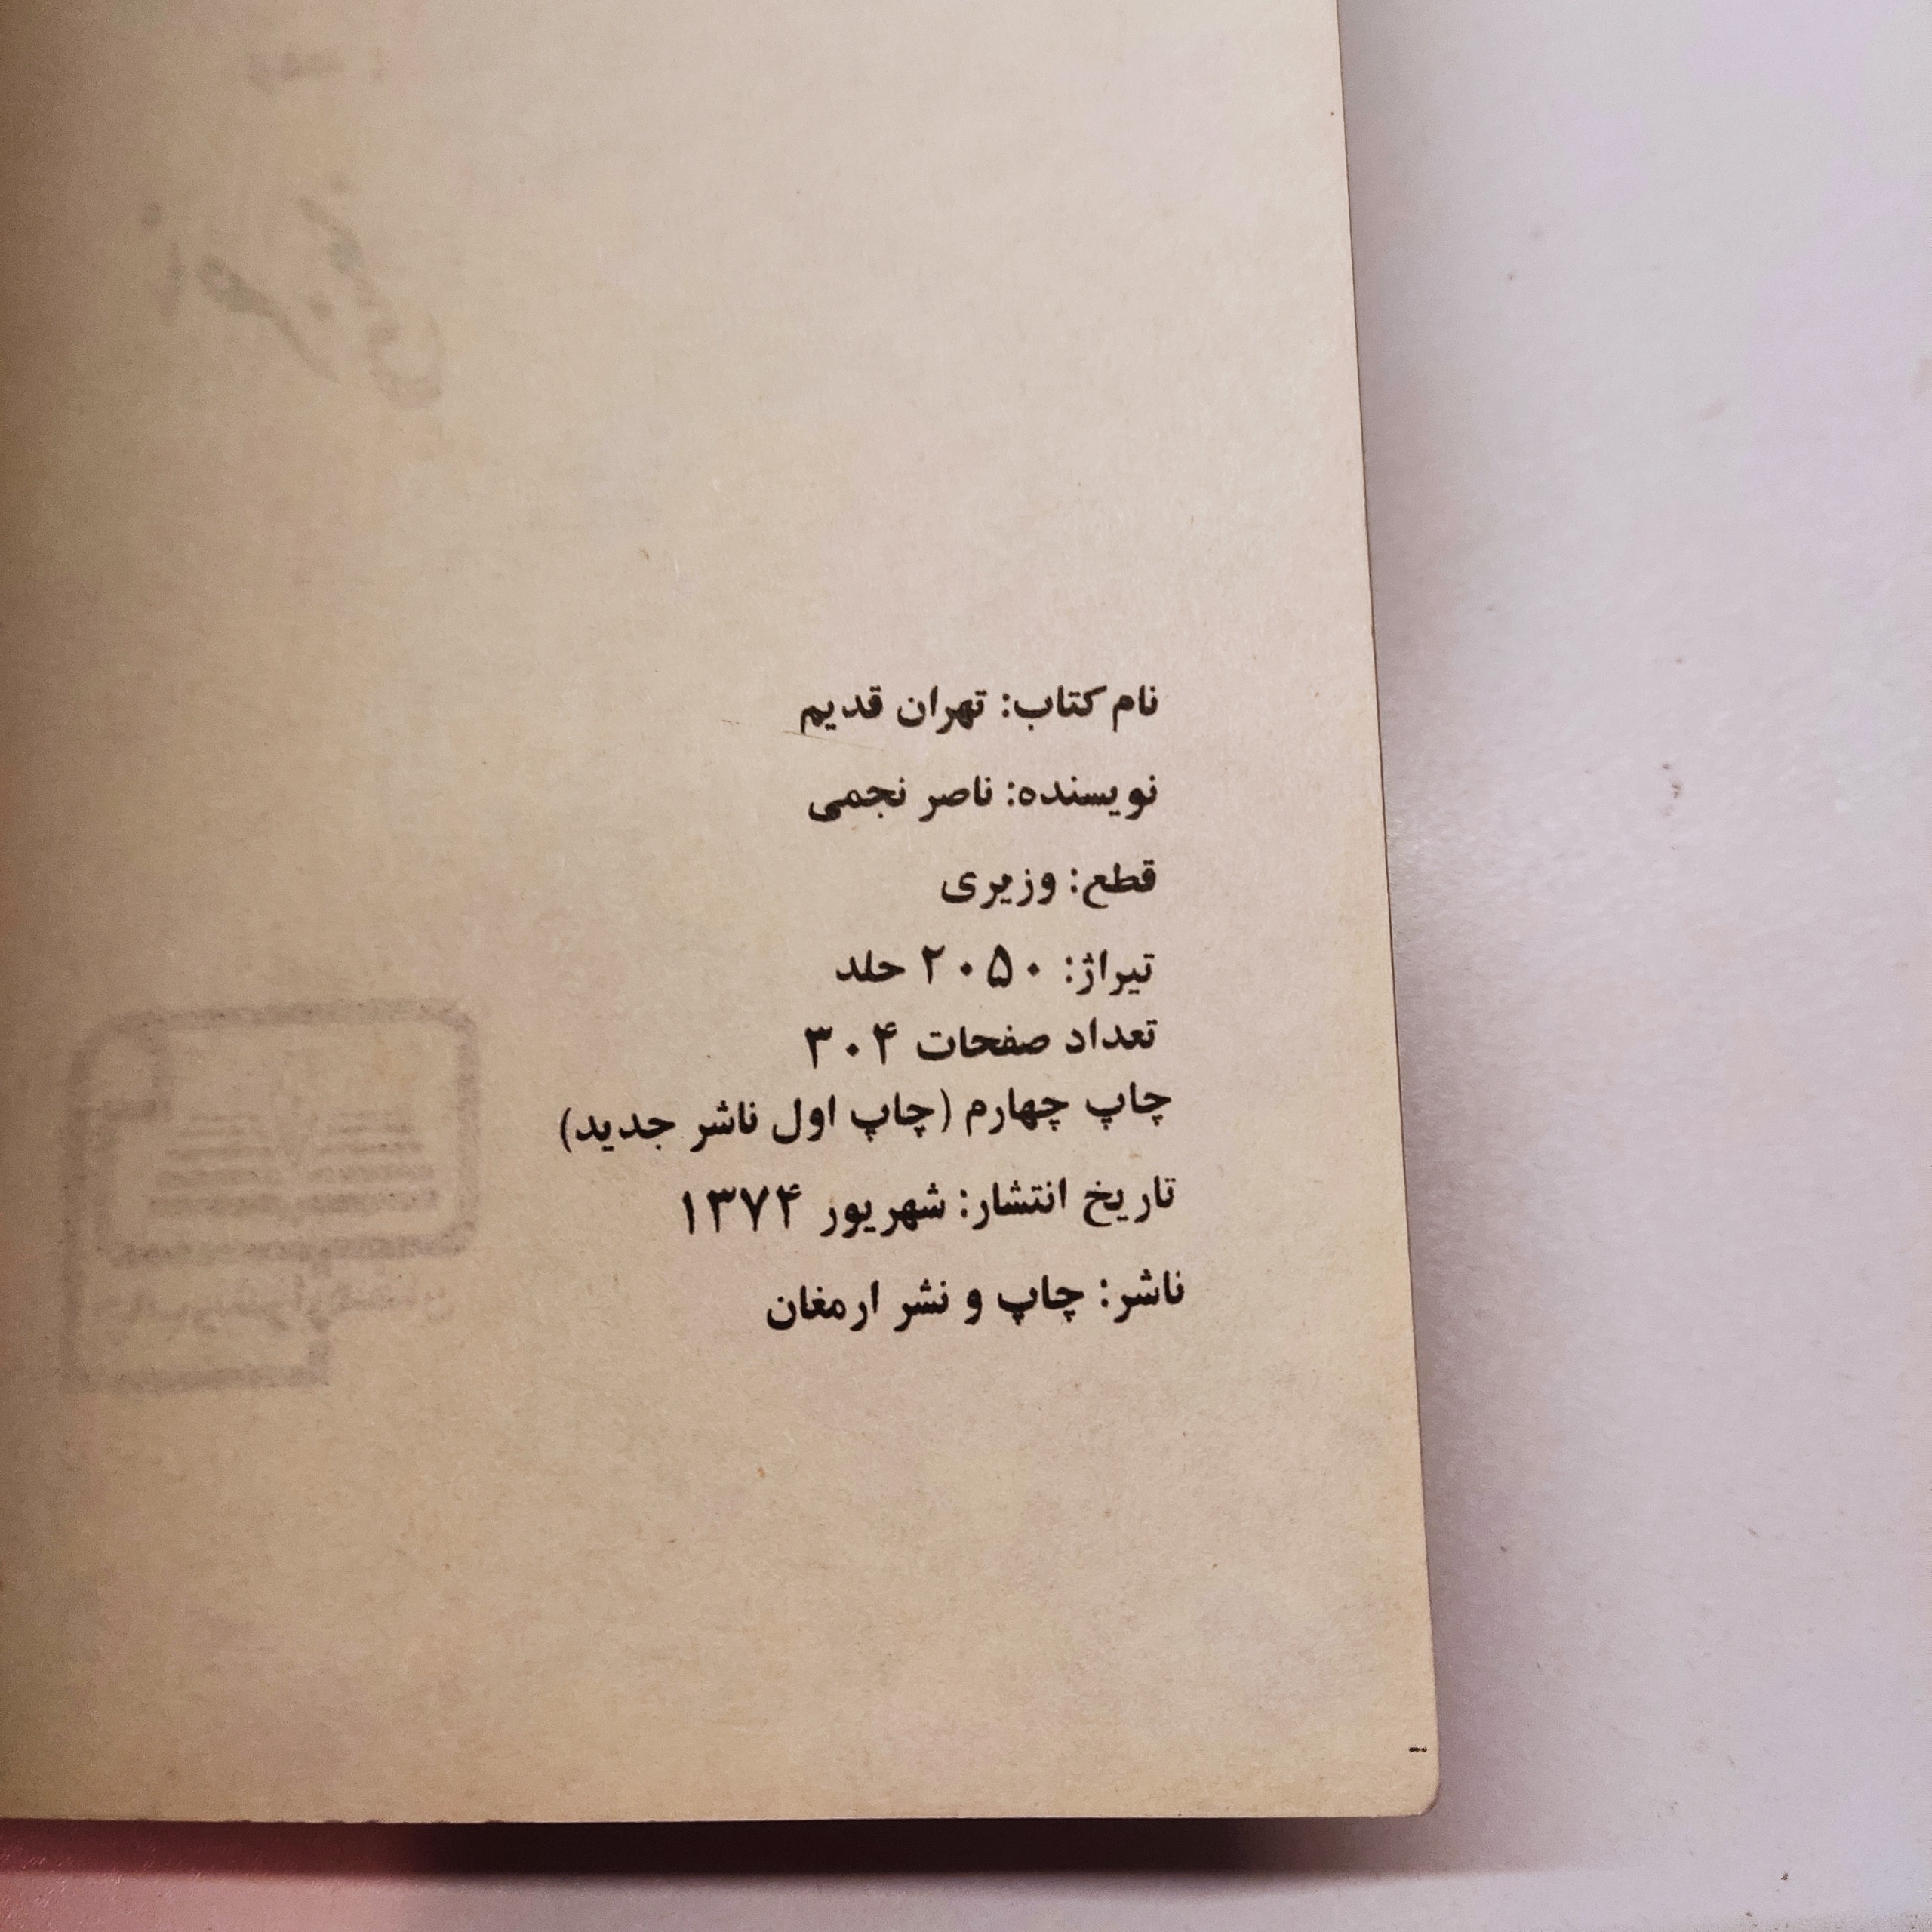 نام کتاب: تهران قدیم
نویسنده: ناصر نجمی
قطع: وزیری
تیراژ: ۲۰۵۰ حلد
تعداد صفحات ۳۰۴
چاپ چهارم (چاپ اول ناشر جدید)
تاریخ انتشار: شهریور ۱۳۷۴
ناشر: چاپ و نشر ارمغان